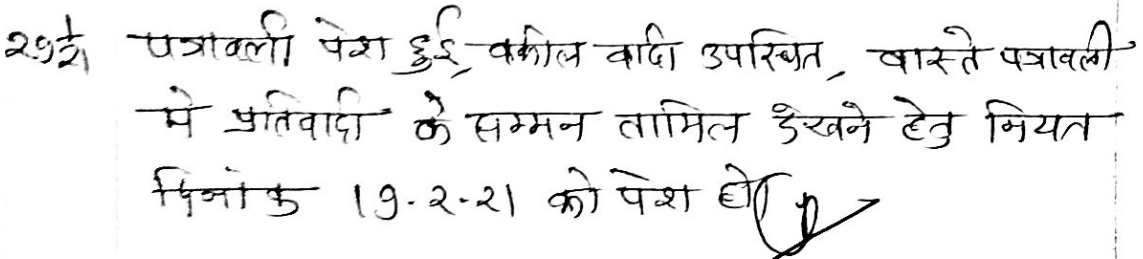 29/1/21 पत्रावली पेश हुई, वकील वादी उपस्थित, वास्ते पत्रावली
मे प्रतिवादी के सम्मन तामिल देखने हेतु नियत
दिनांक 19.2.21 को पेश हो